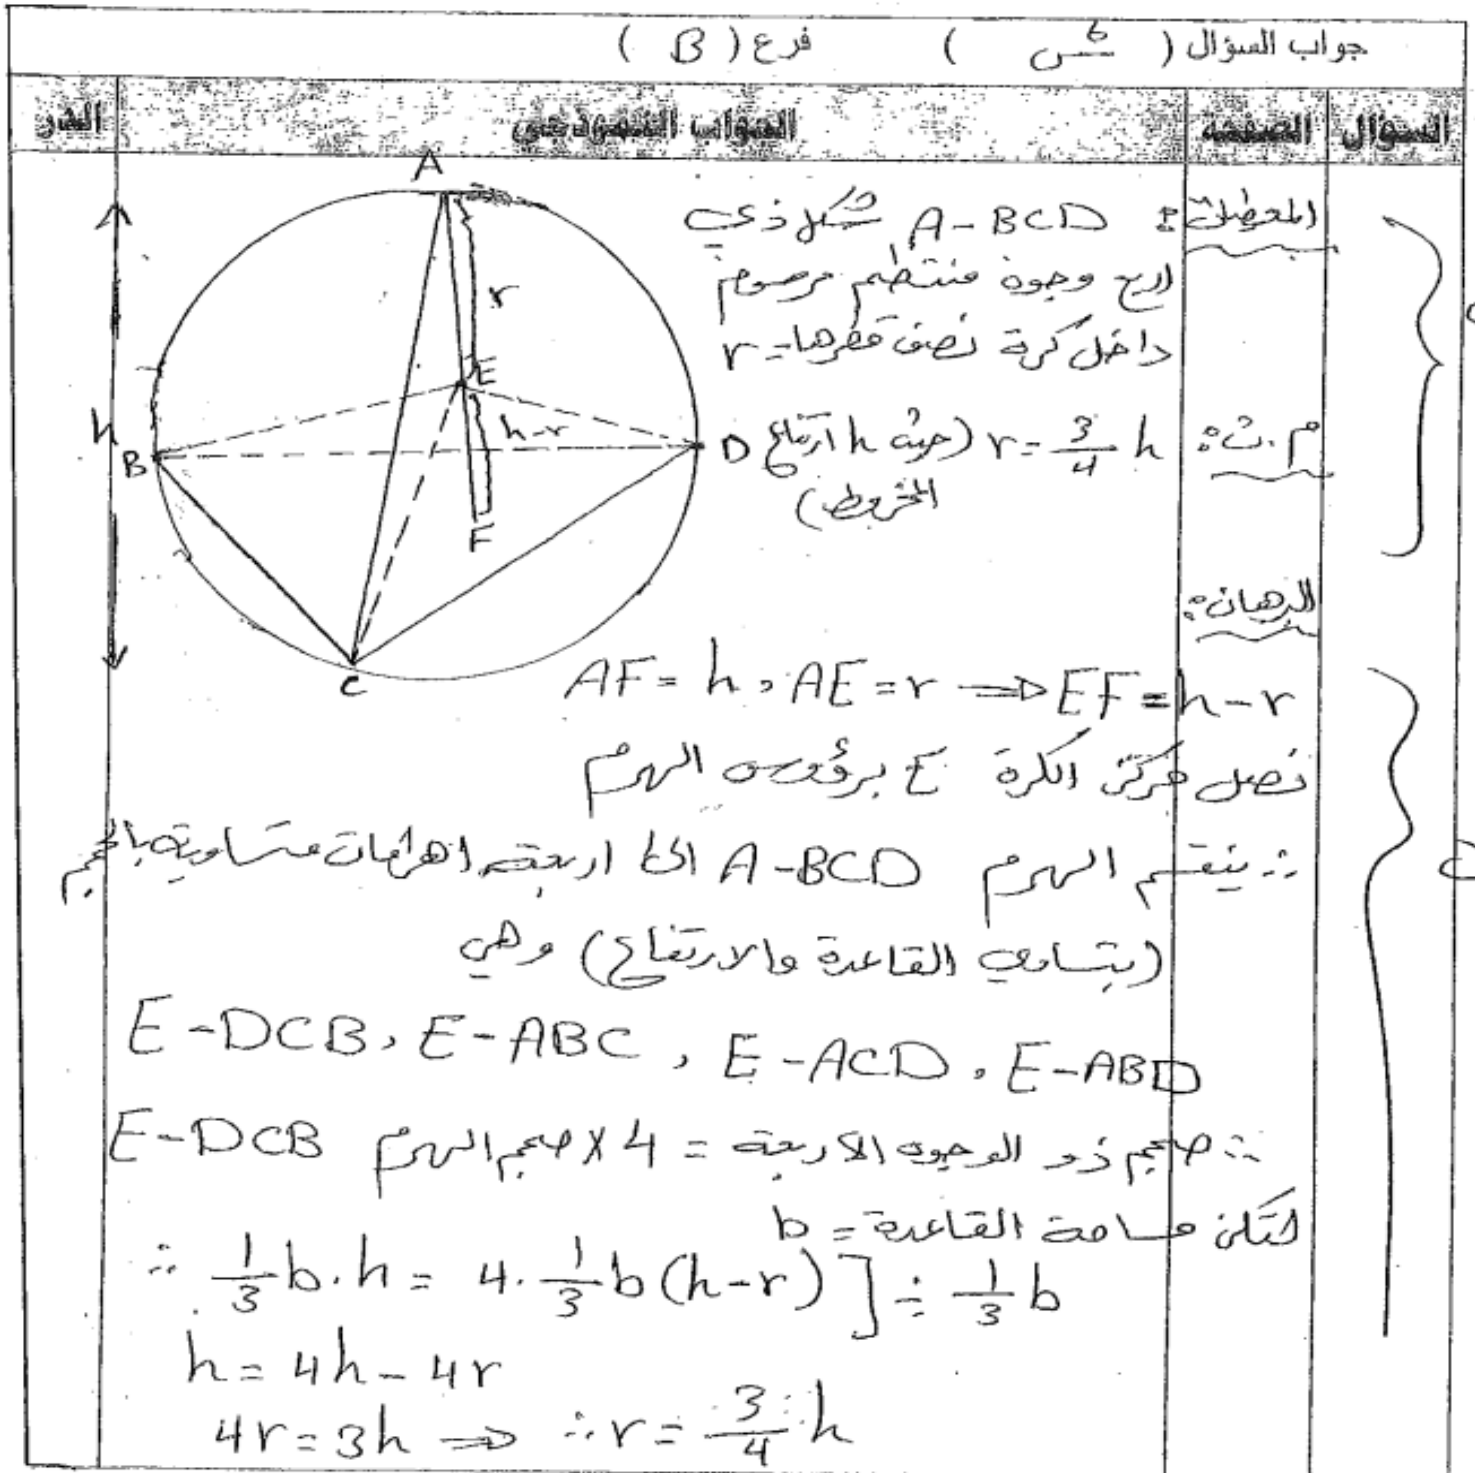 جواب السؤال ( س٦ ) فرع ( B )
السؤال الصفحة الجواب النموذجي الدر
المعطيات: A-BCD شكل ذي
اربع وجوه منتظم مرسوم
داخل كرة نصف قطرها = r
م.ث: r = 3/4 h (حيث h ارتفاع
المخروط)
A
r
E
h-r
h
B
D
F
C
البرهان:
AF = h , AE = r ⇒ EF = h-r
نصل مركز الكرة E برؤوس الهرم
∴ ينقسم الهرم A-BCD الى اربعة اهرامات متساوية بالحجم
(بتساوي القاعدة والارتفاع) وهي
E-DCB , E-ABC , E-ACD , E-ABD
∴ حجم ذو الوجوه الاربعة = 4 × حجم الهرم E-DCB
لتكن مساحة القاعدة = b
∴ 1/3 b.h = 4. 1/3 b(h-r) ] ÷ 1/3 b
h = 4h - 4r
4r = 3h ⇒ ∴ r = 3/4 h